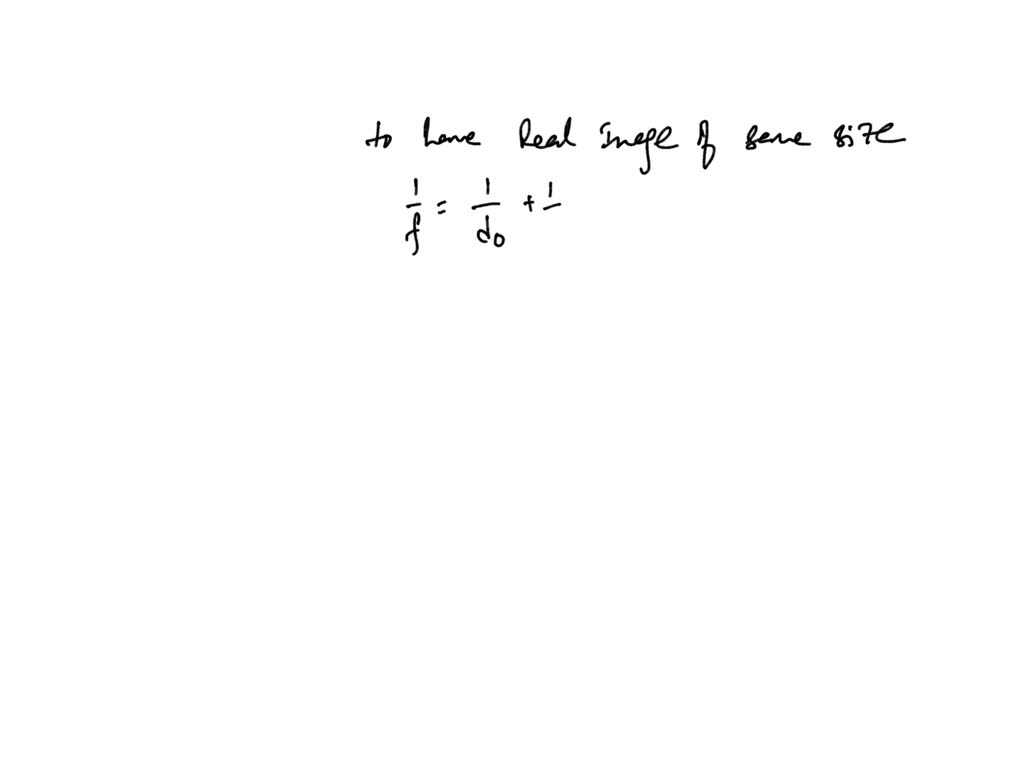 to have Real Image of same size
1/f = 1/do + 1/